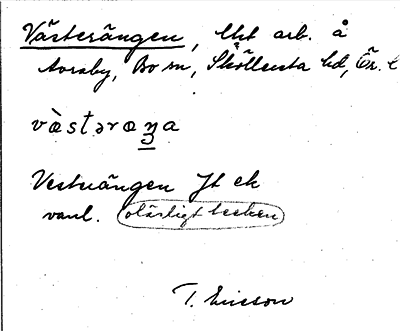 Västerängen, lht arb. å
Norsby, Bo sn, Sköllersta hd, Ör. l
vä̀stəræŋa
Vesterängen Jt ek
vanl. oläsligt tecken
T. Ericson